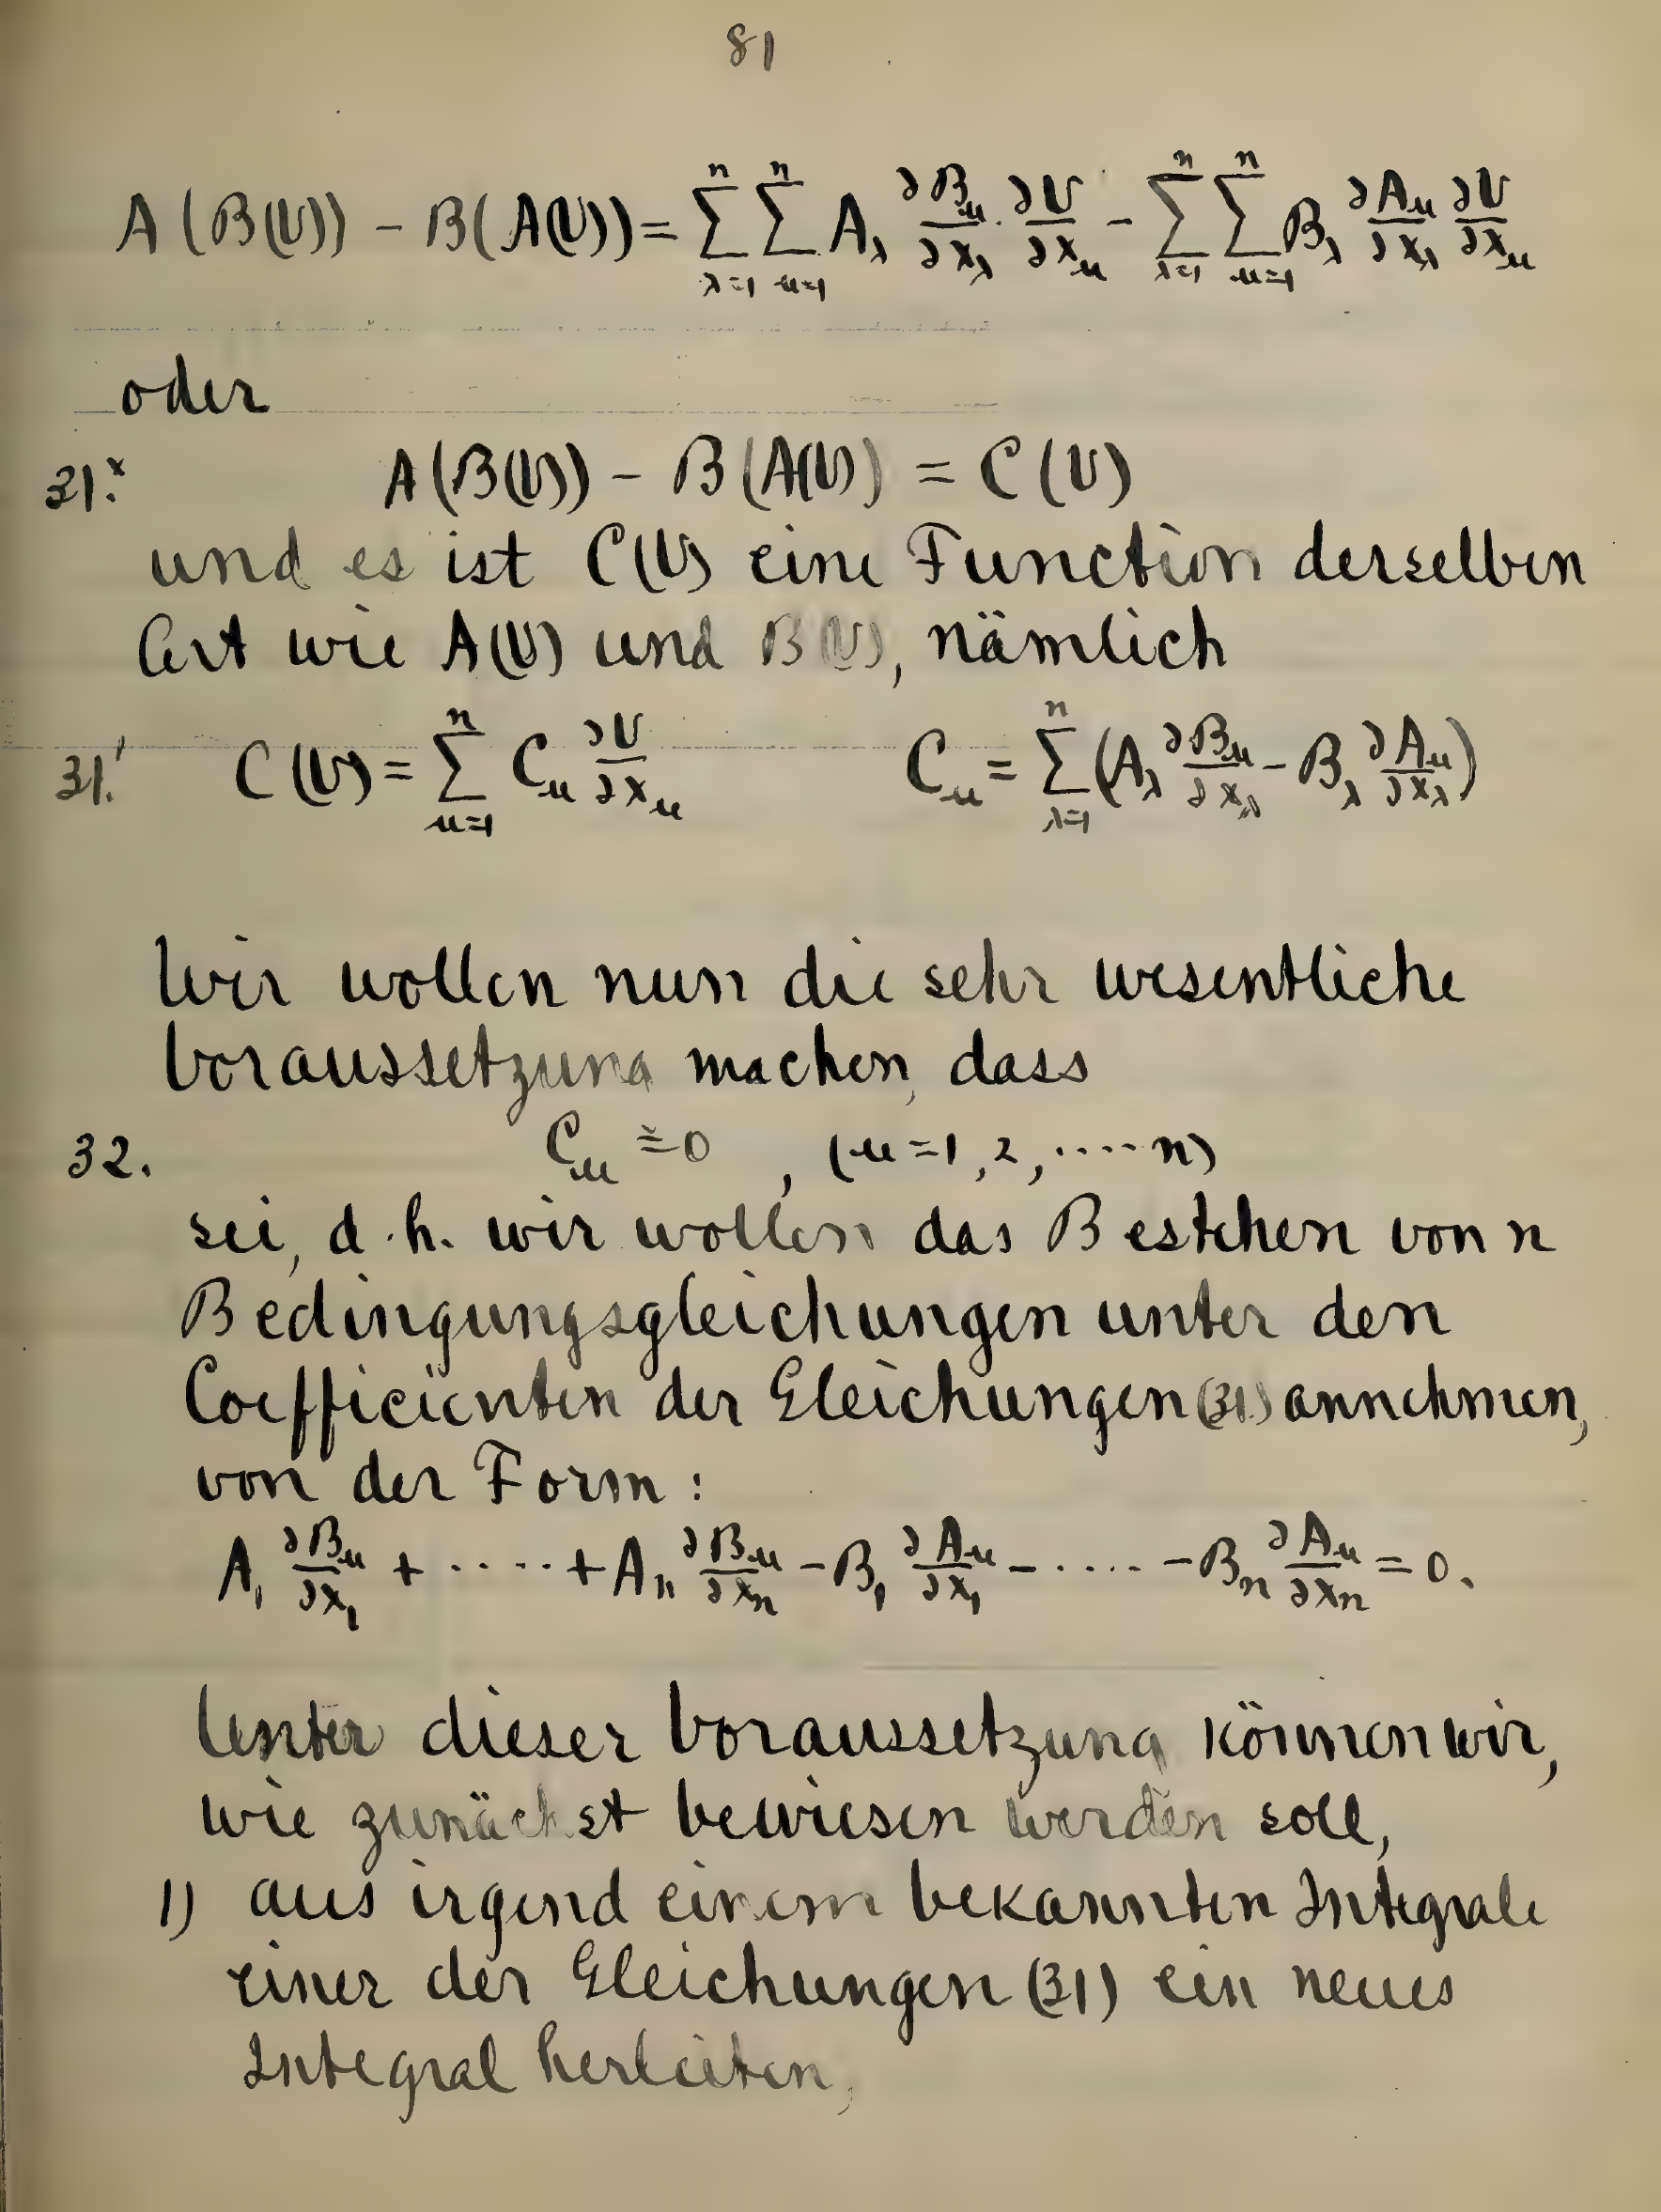 81
A(B(U)) - B(A(U)) = \sum_{λ=1}^{n} \sum_{μ=1}^{n} A_λ \frac{∂B_μ}{∂x_λ} · \frac{∂U}{∂x_μ} - \sum_{λ=1}^{n} \sum_{μ=1}^{n} B_λ \frac{∂A_μ}{∂x_λ} \frac{∂U}{∂x_μ}
oder
31.^x A(B(U)) - B(A(U)) = C(U)
und es ist C(U) eine Function derselben
Art wie A(U) und B(U), nämlich
31.' C(U) = \sum_{μ=1}^{n} C_μ \frac{∂U}{∂x_μ} C_μ = \sum_{λ=1}^{n} (A_λ \frac{∂B_μ}{∂x_λ} - B_λ \frac{∂A_μ}{∂x_λ})
Wir wollen nun die sehr wesentliche
Voraussetzung machen, dass
32. C_μ ≡ 0 , (μ = 1, 2, ····· n)
sei, d. h. wir wollen das Bestehen von n
Bedingungsgleichungen unter den
Coefficienten der Gleichungen (31) annehmen,
von der Form:
A_1 \frac{∂B_μ}{∂x_1} + ····· + A_n \frac{∂B_μ}{∂x_n} - B_1 \frac{∂A_μ}{∂x_1} - ····· - B_n \frac{∂A_μ}{∂x_n} = 0.
Unter dieser Voraussetzung können wir,
wie zunächst bewiesen werden soll,
1) aus irgend einem bekannten Integrale
einer der Gleichungen (31) ein neues
Integral herleiten,